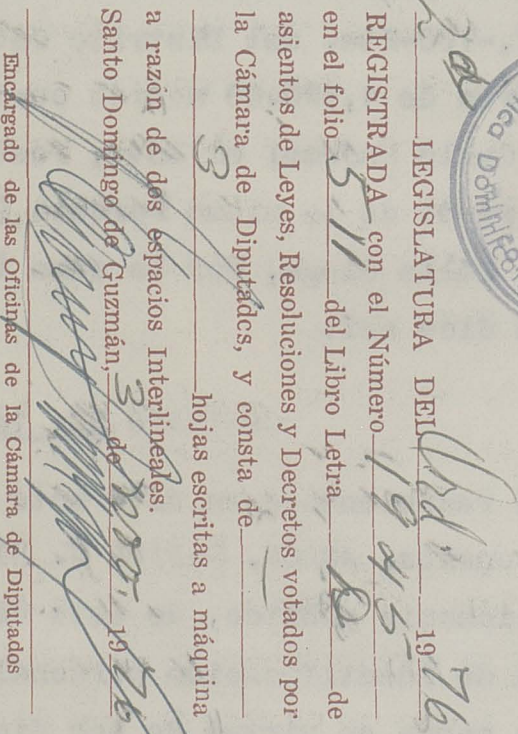 ca Dominica
2da LEGISLATURA DEL Ord. 1976
REGISTRADA con el Número 1945
en el folio 511 del Libro Letra de
asientos de Leyes, Resoluciones y Decretos votados por
la Cámara de Diputados, y consta de
3 hojas escritas a máquina
a razón de dos espacios Interlineales.
Santo Domingo de Guzmán, 3 de 1976
Encargado de las Oficinas de la Cámara de Diputados